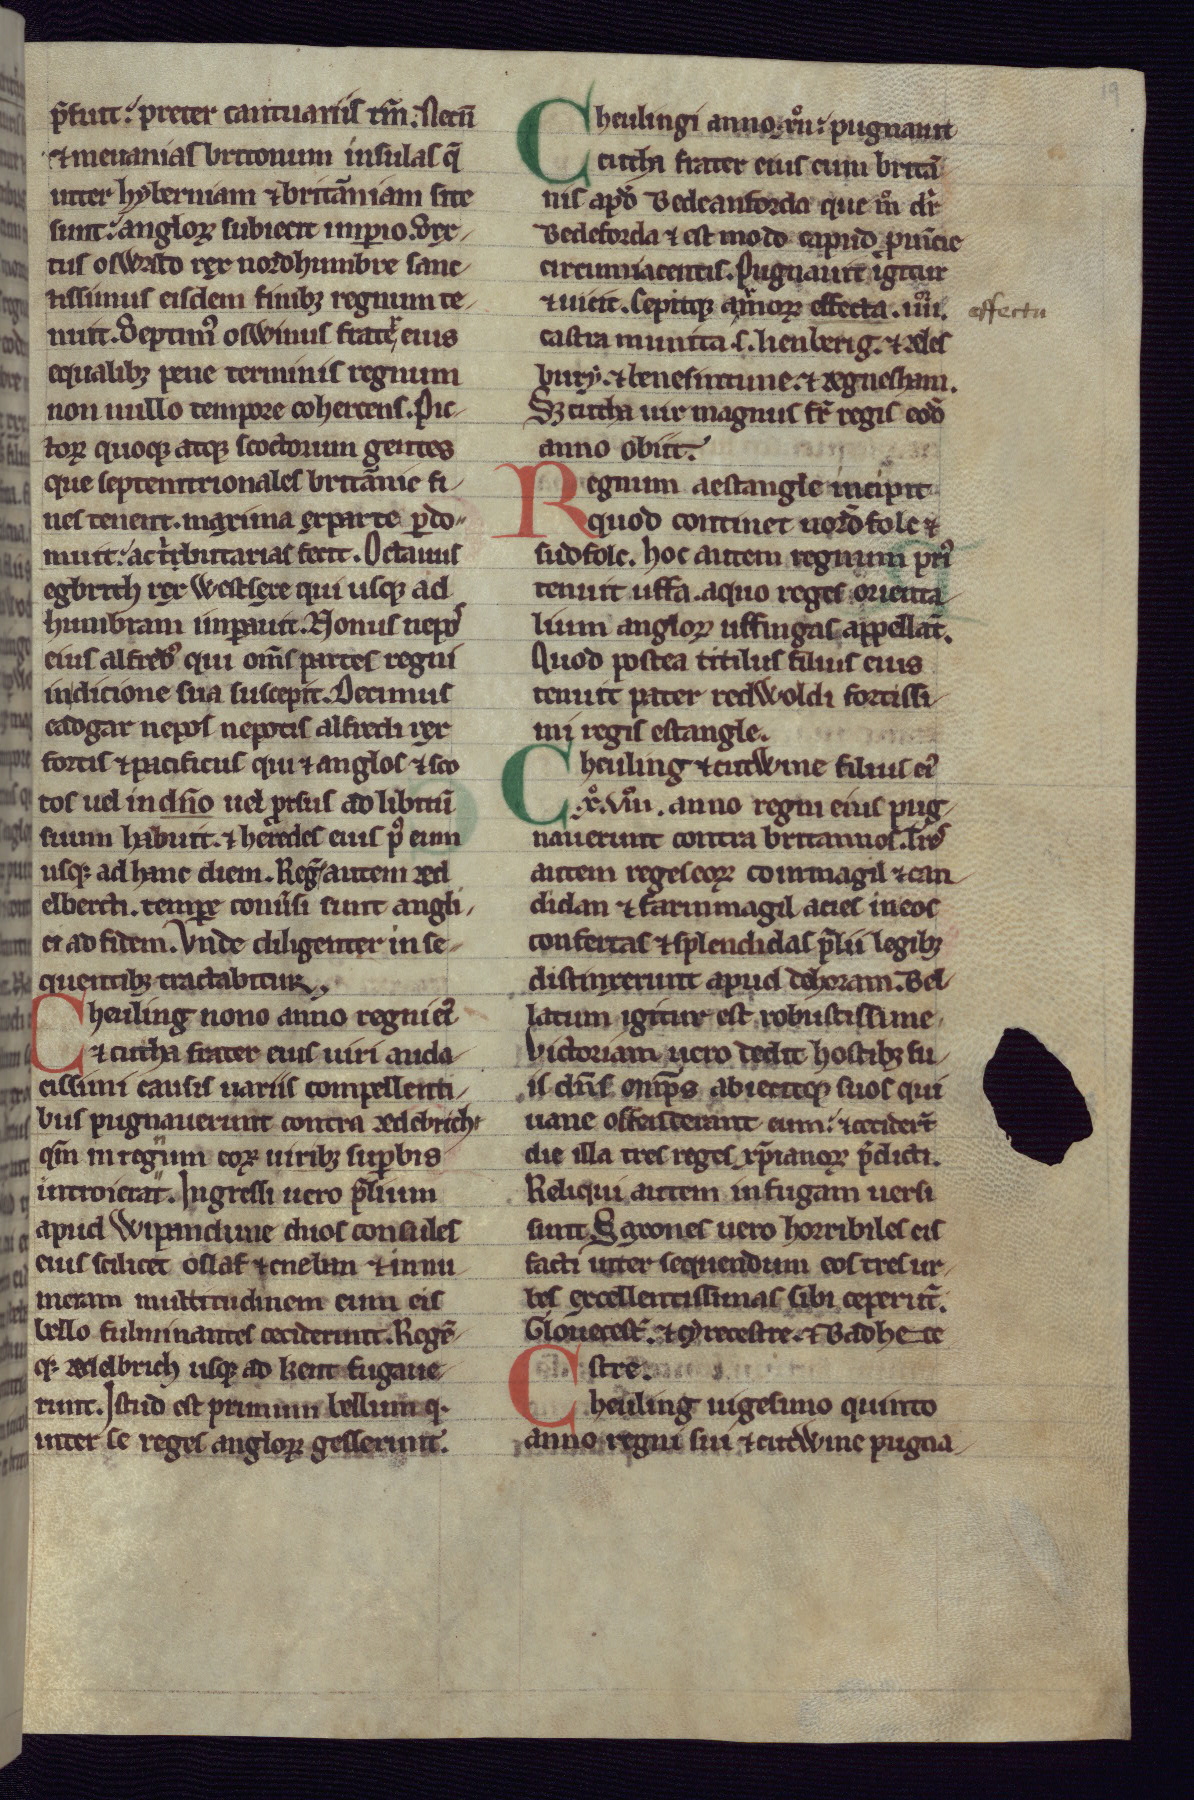 p̄fuit: preter cantuariis tm̄. Necn̄
& meuanias britonum insulas q̄
inter hyberniam & britāniam site
sunt: angloꝝ subiecit imꝑio. Sex-
tus oswaldo rex nordhumbre sanc-
tissimus eisdem finibꝫ regnum te-
nuit. Septimꝰ oswinus frater eius
equalibꝫ pene terminis regnum
non nullo tempore cohercens. Pic-
toꝝ quoqꝫ atqꝫ scoctorum gentes
que septentrionales britānie fi-
nes tenent. maxima exparte ꝑdo-
muit: ac tributarias fecit. Octauus
egbrich rex westsexe qui usqꝫ ad
humbram imꝑauit. Nonus nepos
eius alfredꝰ qui om̄s partes regni
indicione sua suscepit. Decimus
eadogar nepos nepotis alfredi rex
fortis & pacificus qui & anglos & sco
tos uel in dn̄io uel ꝓrsus ad libitū
suum habuit. & heredes eius pꝰ eum
usqꝫ ad hanc diem. Reḡ autem æd
elberch. tempore conūsi sunt angli-
ci ad fidem. Vnde diligenter in se-
quentibꝫ tractabitur.
Cheuling nono anno regni eiꝰ
& cutha frater eius uiri auda-
cissimi causis uariis compellenti-
bus pugnauerunt contra ædebrich
qm̄ in regnum eoꝝ uiribꝫ suꝑbis
introierat. Ingressi uero p̄lium
apud wipandune duos consules
eius scilicet oslaf & cneban & innu-
meram multitudinem cum eis
bello fulminantes ceciderunt. Regē
qꝫ ædelbrich usqꝫ ad kent fugaue-
runt. Istud est primum bellum q.
inter se reges angloꝝ gesserunt.
Cheulingi anno .xͦu: pugnauit
cutha frater eius cum britā-
nis apd̄ Bedeanforda que m̊ dr̄
Bedeforda & est modo capud ꝓuīcie
circumiacentis. Pugnauit igitur
& uicit. Cepitqꝫ armoꝝ effecta .iiiiͦʳ.
effectu
castra munita .s. lienberig. & æles
bury. & benesintune. & ægnesham.
Sꝫ cutha uir magnus fr̄ regis eod̄
anno obiit.
Regnum aestangle incipit
quod continet nordfolc &
sudfolc. Hoc autem regnum pri⁹
tenuit uffa. aquo reges orienta
lium angloꝝ uffingas appellat̄.
Quod postea titilus filius eius
tenuit pater redwoldi fortissi-
mi regis estangle.
Cheuling & cutwine filius eiꝰ
.xͦ.uiiiͦ. anno regni eius pug-
nauerunt contra britannos. Tres
autem reges eoꝝ commagil & can-
didan & farinmagil acies in eos
confertas & splendidas p̄lii legibꝫ
distinxerunt apud dehoram. Bel-
latum igitur est robustissime.
Victoriam uero dedit hostibꝫ su-
is dn̄s om̄ps abiecitqꝫ suos qui
uane offenderant eum: & cecider̄t
die illa tres reges xp̄ianoꝝ p̄dicti.
Reliqui autem in fugam uersi
sunt. Saxones uero horribiles eis
facti inter sequendum eos tres ur-
bes excellentissimas sibi ceperūt.
Glouecest̄. & cyrecestre. & Badhe-ce
stre.
Cheuling uigesimo quinto
anno regni sui & cutwine pugna-